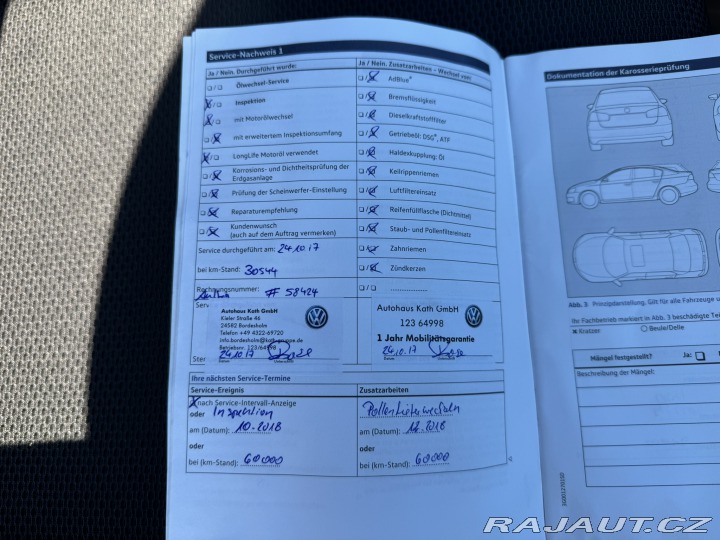 Service-Nachweis 1
Ja / Nein. Durchgeführt wurde:
Ölwechsel-Service
Inspektion
mit Motorölwechsel
mit erweitertem Inspektionsumfang
LongLife Motoröl verwendet
Korrosions- und Dichtheitsprüfung der
Erdgasanlage
Prüfung der Scheinwerfer-Einstellung
Reparaturempfehlung
Kundenwunsch
(auch auf dem Auftrag vermerken)
Service durchgeführt am: 24.10.17
bei km-Stand: 30544
Rechnungsnummer: # 58424
Autohaus Kath GmbH
Kieler Straße 46
24582 Bordesholm
Telefon +49 4322-69720
info.bordesholm@kath-gruppe.de
Betriebsnr. 123/64998
24.10.17
Ja / Nein. Zusatzarbeiten - Wechsel von:
AdBlue®
Bremsflüssigkeit
Dieselkraftstofffilter
Getriebeöl: DSG®, ATF
Haldexkupplung: Öl
Keilrippenriemen
Luftfiltereinsatz
Reifenfüllflasche (Dichtmittel)
Staub- und Pollenfiltereinsatz
Zahnriemen
Zündkerzen
Autohaus Kath GmbH
123 64998
1 Jahr Mobilitätsgarantie
24.10.17
Ihre nächsten Service-Termine
Service-Ereignis
nach Service-Intervall-Anzeige
oder Inspektion
am (Datum): 10.2018
oder
bei (km-Stand): 60000
Zusatzarbeiten
am (Datum): 10.2018
oder
bei (km-Stand): 60000
Dokumentation der Karosserieprüfung
Abb. 3 Prinzipdarstellung. Gilt für alle Fahrzeuge
Ihr Fachbetrieb markiert in Abb. 3 beschädigte
Kratzer
Beule/Delle
Mängel festgestellt? Ja:
Beschreibung der Mängel:
RAJAUT.CZ